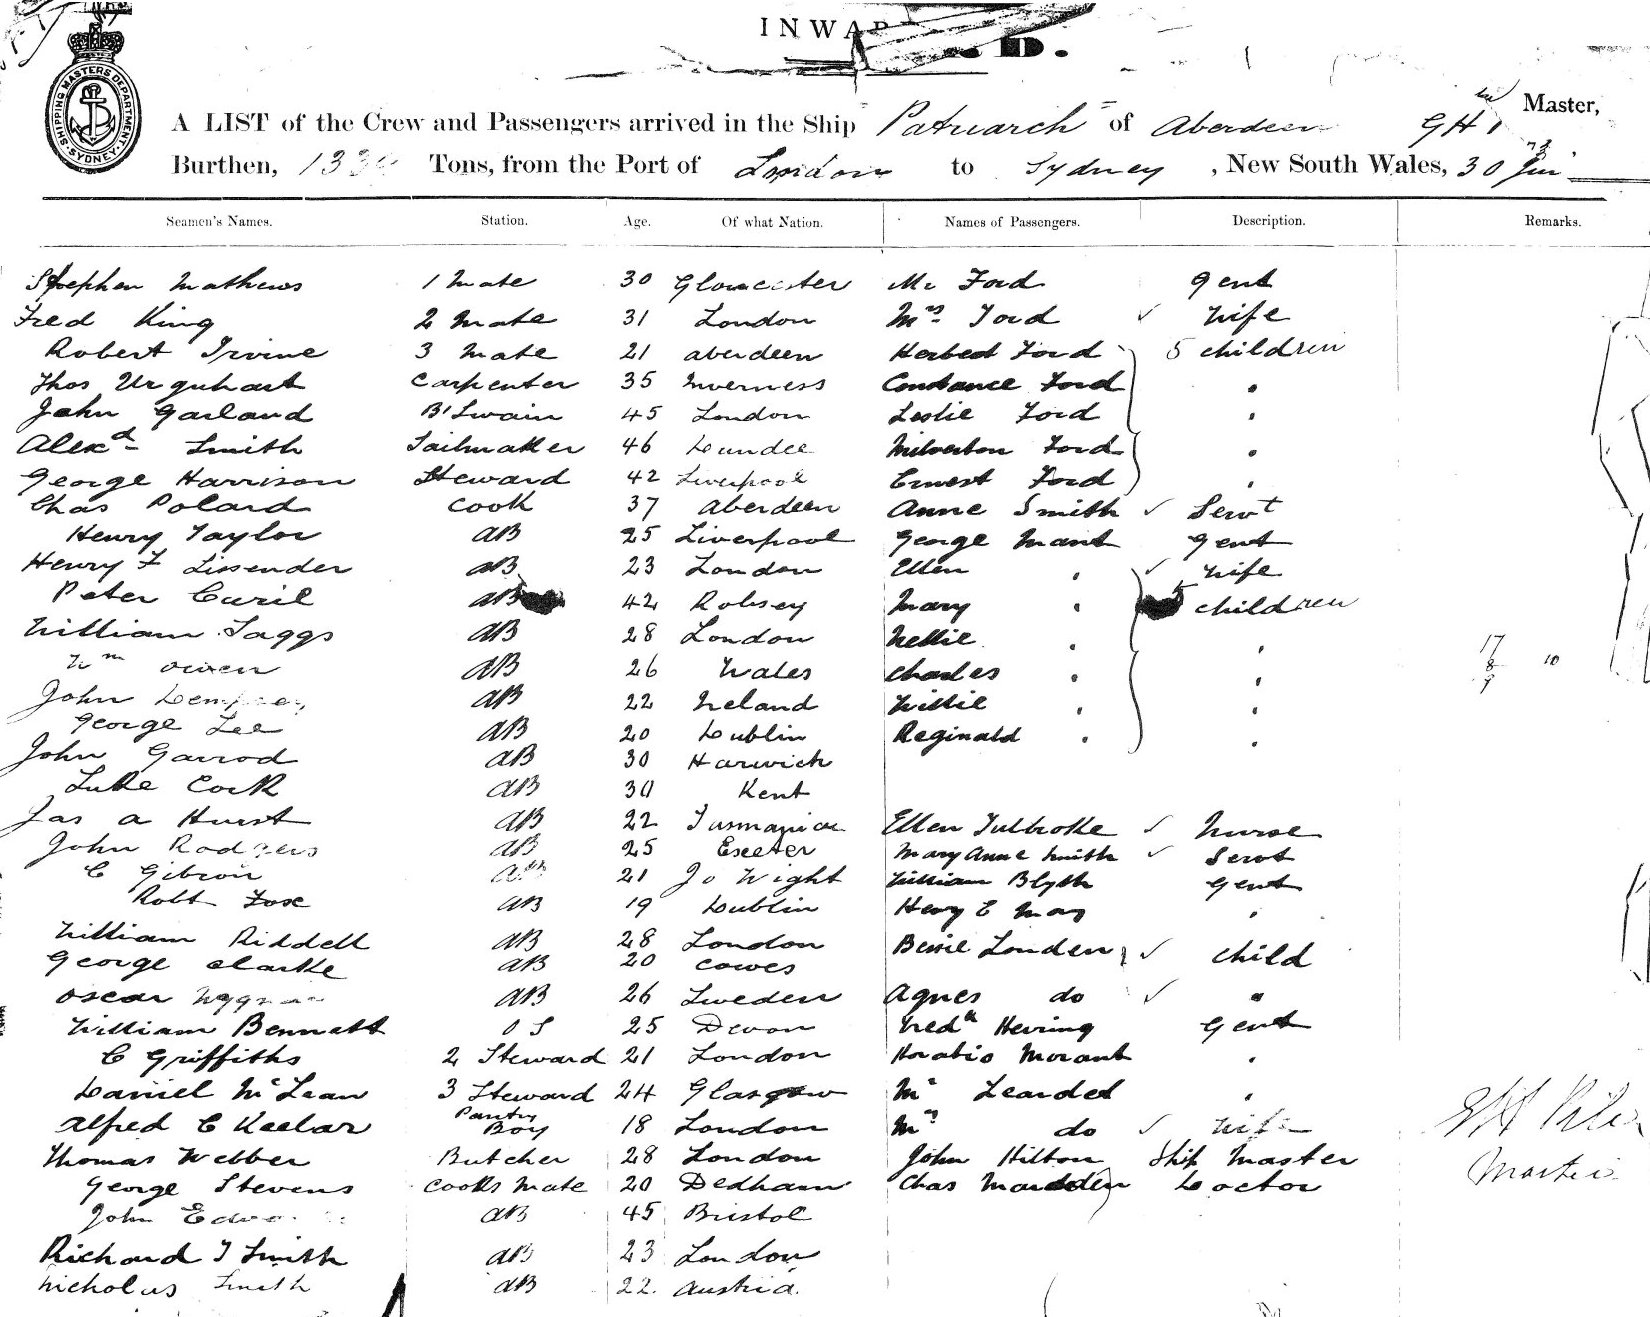 INWARD.
SHIPPING MASTERS DEPARTMENT SYDNEY
A LIST of the Crew and Passengers arrived in the Ship "Patriarch" of Aberdeen GH Master,
Burthen, 133 Tons, from the Port of London to Sydney, New South Wales, 30 Jun
Seamen's Names. Station. Age. Of what Nation. Names of Passengers. Description. Remarks.
Stephen Mathews 1 Mate 30 Gloucester Mr Ford Gent
Fred King 2 Mate 31 London Mrs Ford ✓ Wife
Robert Irvine 3 Mate 21 Aberdeen Herbert Ford 5 children
Thos Urquhart Carpenter 35 Inverness Constance Ford "
John Garland B'Swain 45 London Leslie Ford "
Alexd Smith Sailmaker 46 Dundee Milverton Ford "
George Harrison Steward 42 Liverpool Ernest Ford "
Chas Polard Cook 37 Aberdeen Anne Smith ✓ Servt
Henry Taylor AB 25 Liverpool George Mant Gent
Henry F Lissender AB 23 London Ellen " ✓ Wife
Peter Caril AB 42 Mary " 5 children
William Taggs AB 28 London Nellie " "
Wm Owen AB 26 Wales Charles " " 17 8 9 10
John AB 22 Ireland Willie " "
George Lee AB 20 Dublin Reginald " "
John Garrod AB 30 Harwich
Luke Cock AB 30 Kent
Jas A Hurst AB 22 Tasmania Ellen Tulbroke ✓ Nurse
John Rodgers AB 25 Exeter Mary Anne Smith ✓ Servt
C Gibson AB 21 Io Wight William Blyth Gent
Robt Fox AB 19 Dublin Henry E May "
William Riddell AB 28 London Bessie Louden ✓ Child
George Clarke AB 20 Cowes
Oscar AB 26 Sweden Agnes do ✓ "
William Bennett OS 25 Devon Fredk Hering Gent
C Griffiths 2 Steward 21 London Horatio Morant "
Daniel McLean 3 Steward 24 Glasgow Mr Leardet "
Alfred C Keelar Pantry Boy 18 London Mrs do ✓ Wife
Thomas Webber Butcher 28 London John Hilton Ship Master
George Stevens Cooks Mate 20 Dedham Chas Madden Doctor
John AB 45 Bristol
Richard T Smith AB 23 London
Nicholas Smith AB 22 Austria
Master